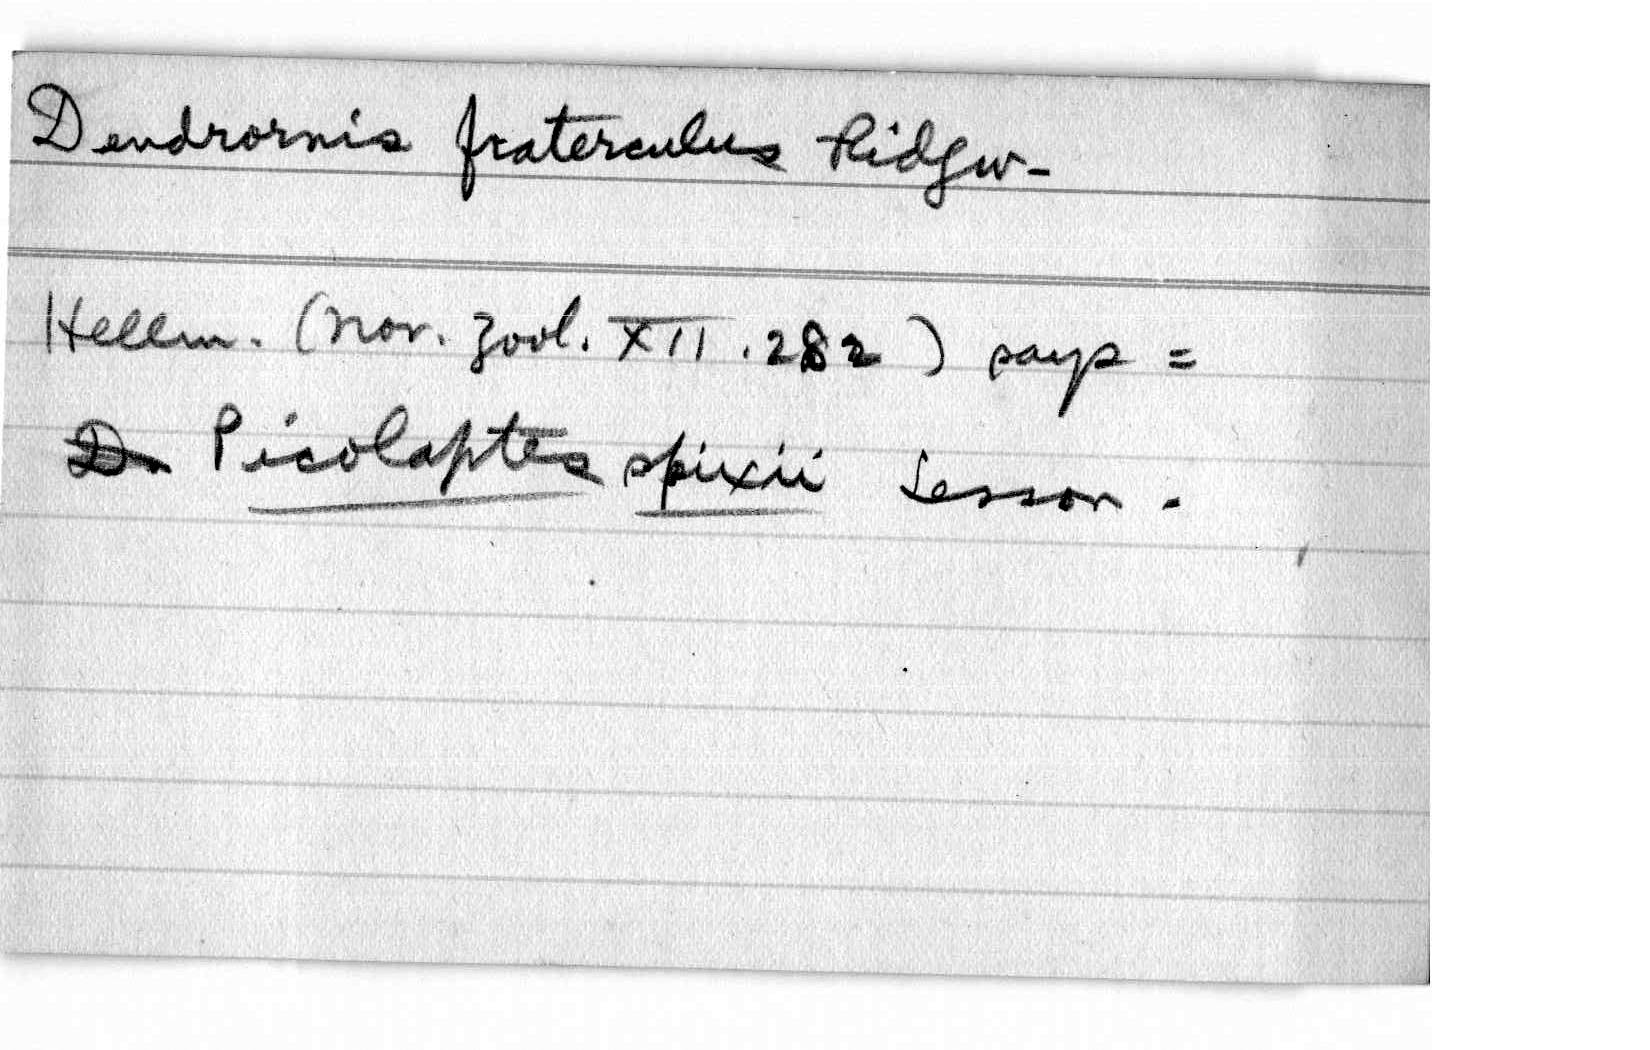 Dendrornis fraterculus Ridgw-
Hellm. (Nov. Zool. XII. 282) says =
Picolaptes spixii Lesson.